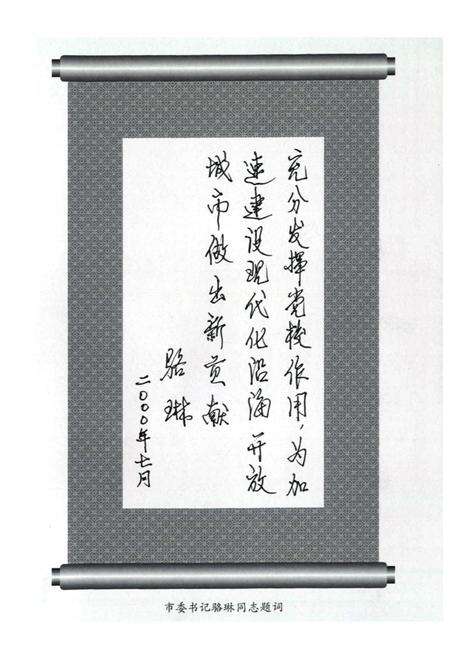 充分发挥党校作用，为加
速建设现代化沿海开放
城市做出新贡献
骆琳
二〇〇〇年七月
市委书记骆琳同志题词